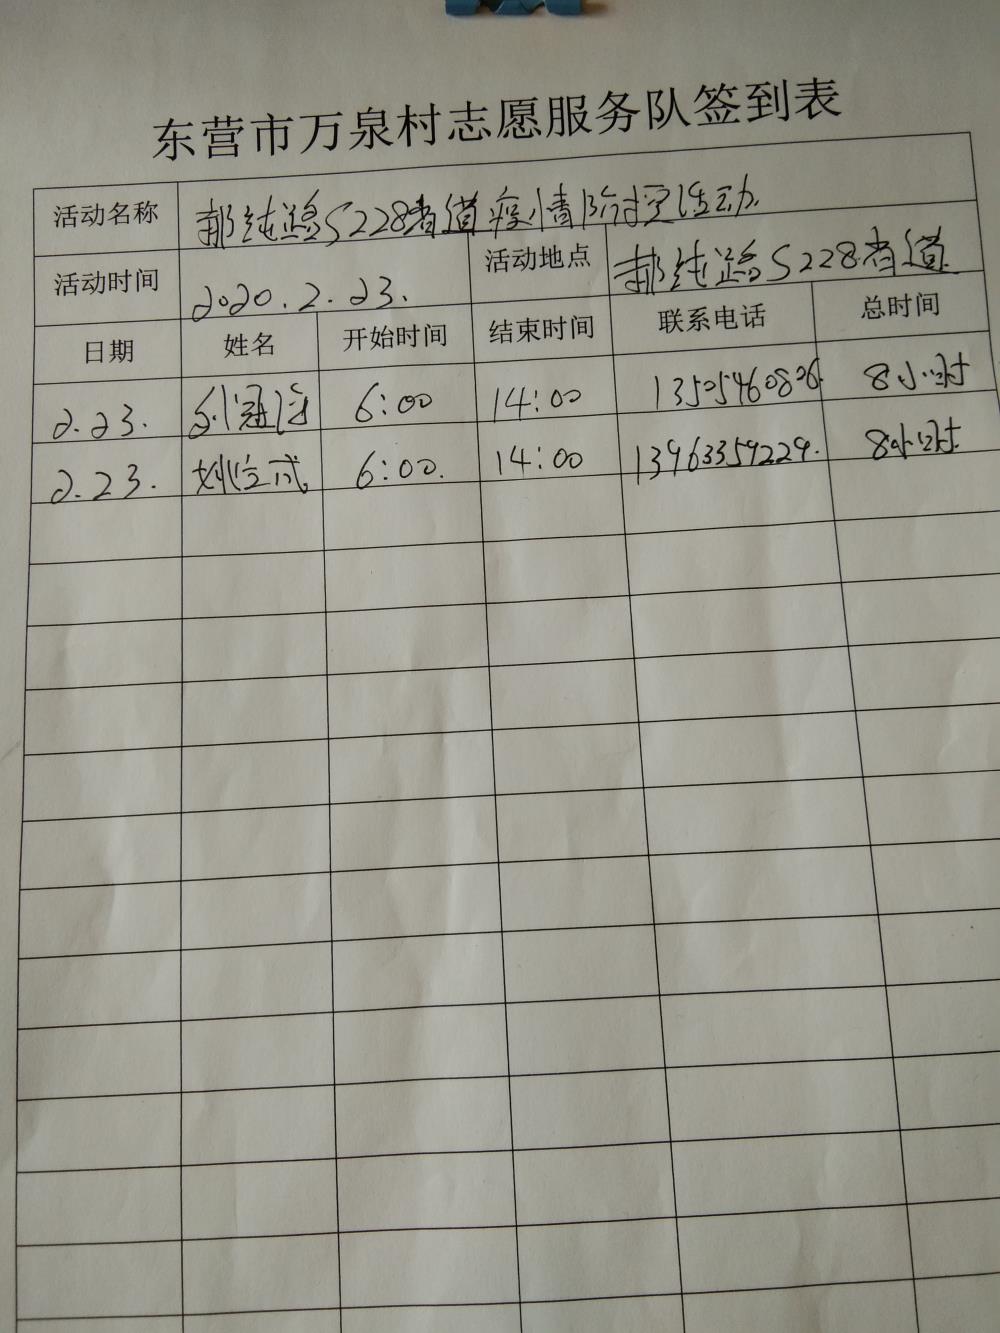 东营市万泉村志愿服务队签到表
活动名称 郝纯路S228省道疫情防控活动
活动时间 2020.2.23. 活动地点 郝纯路S228省道
日期 姓名 开始时间 结束时间 联系电话 总时间
2.23. 6:00 14:00 13505460806. 8小时
2.23. 6:00. 14:00 13963359229. 8小时